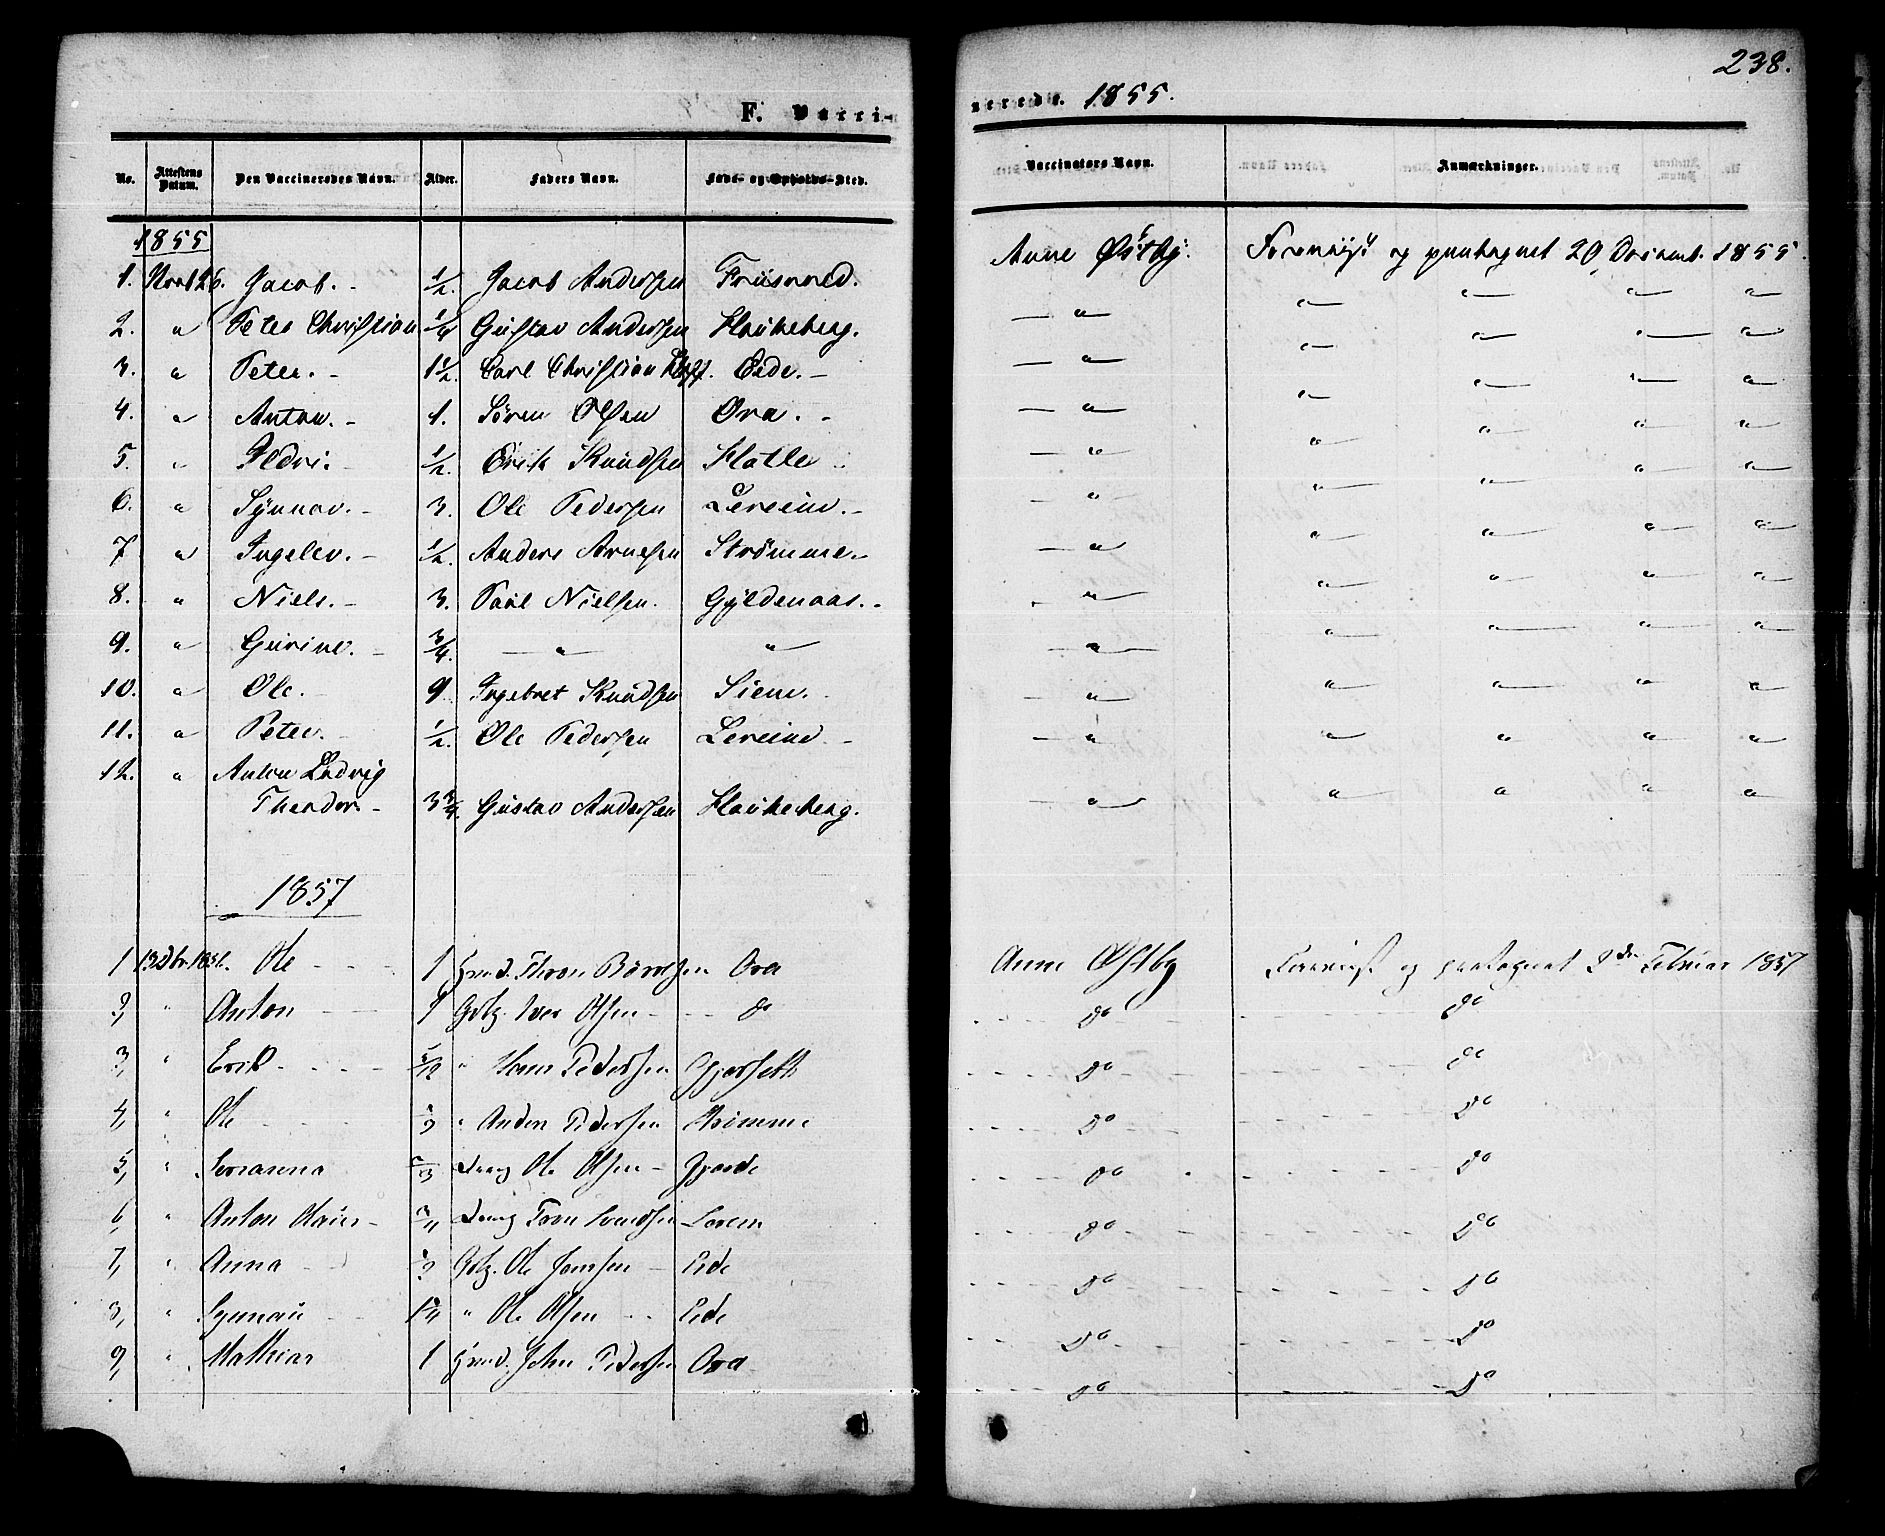 238.
F. Vacci-
nerede. 1855.
No. Attestens Datum. Den Vaccineredes Navn. Alder. Faders Navn. Føde- og Opholds-Sted. Vaccinators Navn. Anmærkninger.
1855
1. Jacob. - 1/2. Jacob Andersen Friisvold. Anne Østby. Foreviist og paategnet 20 Decemb. 1855.
2. " Peter Christian 1/4 Gustav Andersen Haukeberg. — " — " " " "
3. " Peter. - 1 1/2. Carl Christian Eide. - — " — " " " "
4. " Anton. - 1. Sören Olsen Ora. - — " — " " " "
5. " Ildri. 1/2. Erik Knudsen Hatle — " — " " " "
6. " Synnov. - 3. Ole Pedersen Lereim. - — " — " " " "
7 " Ingelev. - 1/2. Anders Arnesen Strømme. — " — " " " "
8. " Niels. - 3. Paul Nielsen. Gyldenaas. - — " — " " " "
9. " Gurine. - 3/4. — " — " — " — " " " "
10. " Ole. 9. Ingebret Knudsen Siem. — " — " " " "
11. " Peter. 1/2. Ole Pedersen Lereim - — " — " " " "
12. " Anton Ludvig
Theodor. - 3 3/4. Gustav Andersen Haukeberg. — " — " " " "
1857
1 Ole - - - 1 Ora Anne Østby Foreviist og paategnet Februar 1857
2, " Anton - - 1 Iver Olsen - - - do do do
3, " Erik - - - - " Hans Pedersen Gjersett do do
4, " Ole - - - " Anders Pedersen Strømme do do
5, " Ole Olsen - Gjerde do do
6, " Anton - Lerem do do
7, " Anna - - Ole Jensen - Eide do do
8, " Synnau - - " Ole Olsen - - Eide do do
9, " Mathias 1 John Pedersen Ora do do